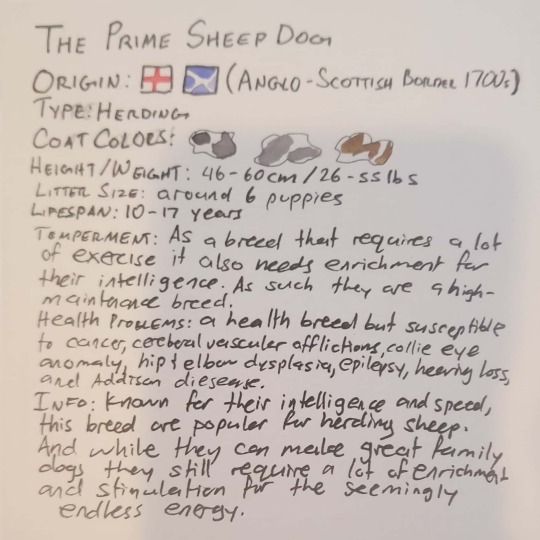 THE PRIME SHEEP DOG
ORIGIN: (ANGLO-SCOTTISH BORDER 1700s)
TYPE: HERDING
COAT COLORS:
HEIGHT/WEIGHT: 46-60cm/26-55 lbs
LITTER SIZE: around 6 puppies
LIFESPAN: 10-17 years
TEMPERMENT: As a breed that requires a lot
of exercise it also needs enrichment for
their intelligence. As such they are a high-
maintnance breed.
HEALTH PROBLEMS: a health breed but susceptible
to cancer, cerebral vascular afflictions, collie eye
anomaly, hip & elbow dysplasia, epilepsy, hearing loss,
and Addison diesease.
INFO: Known for their intelligence and speed,
this breed are popular for herding sheep.
And while they can make great family
dogs they still require a lot of enrichment
and stimulation for the seemingly
endless energy.